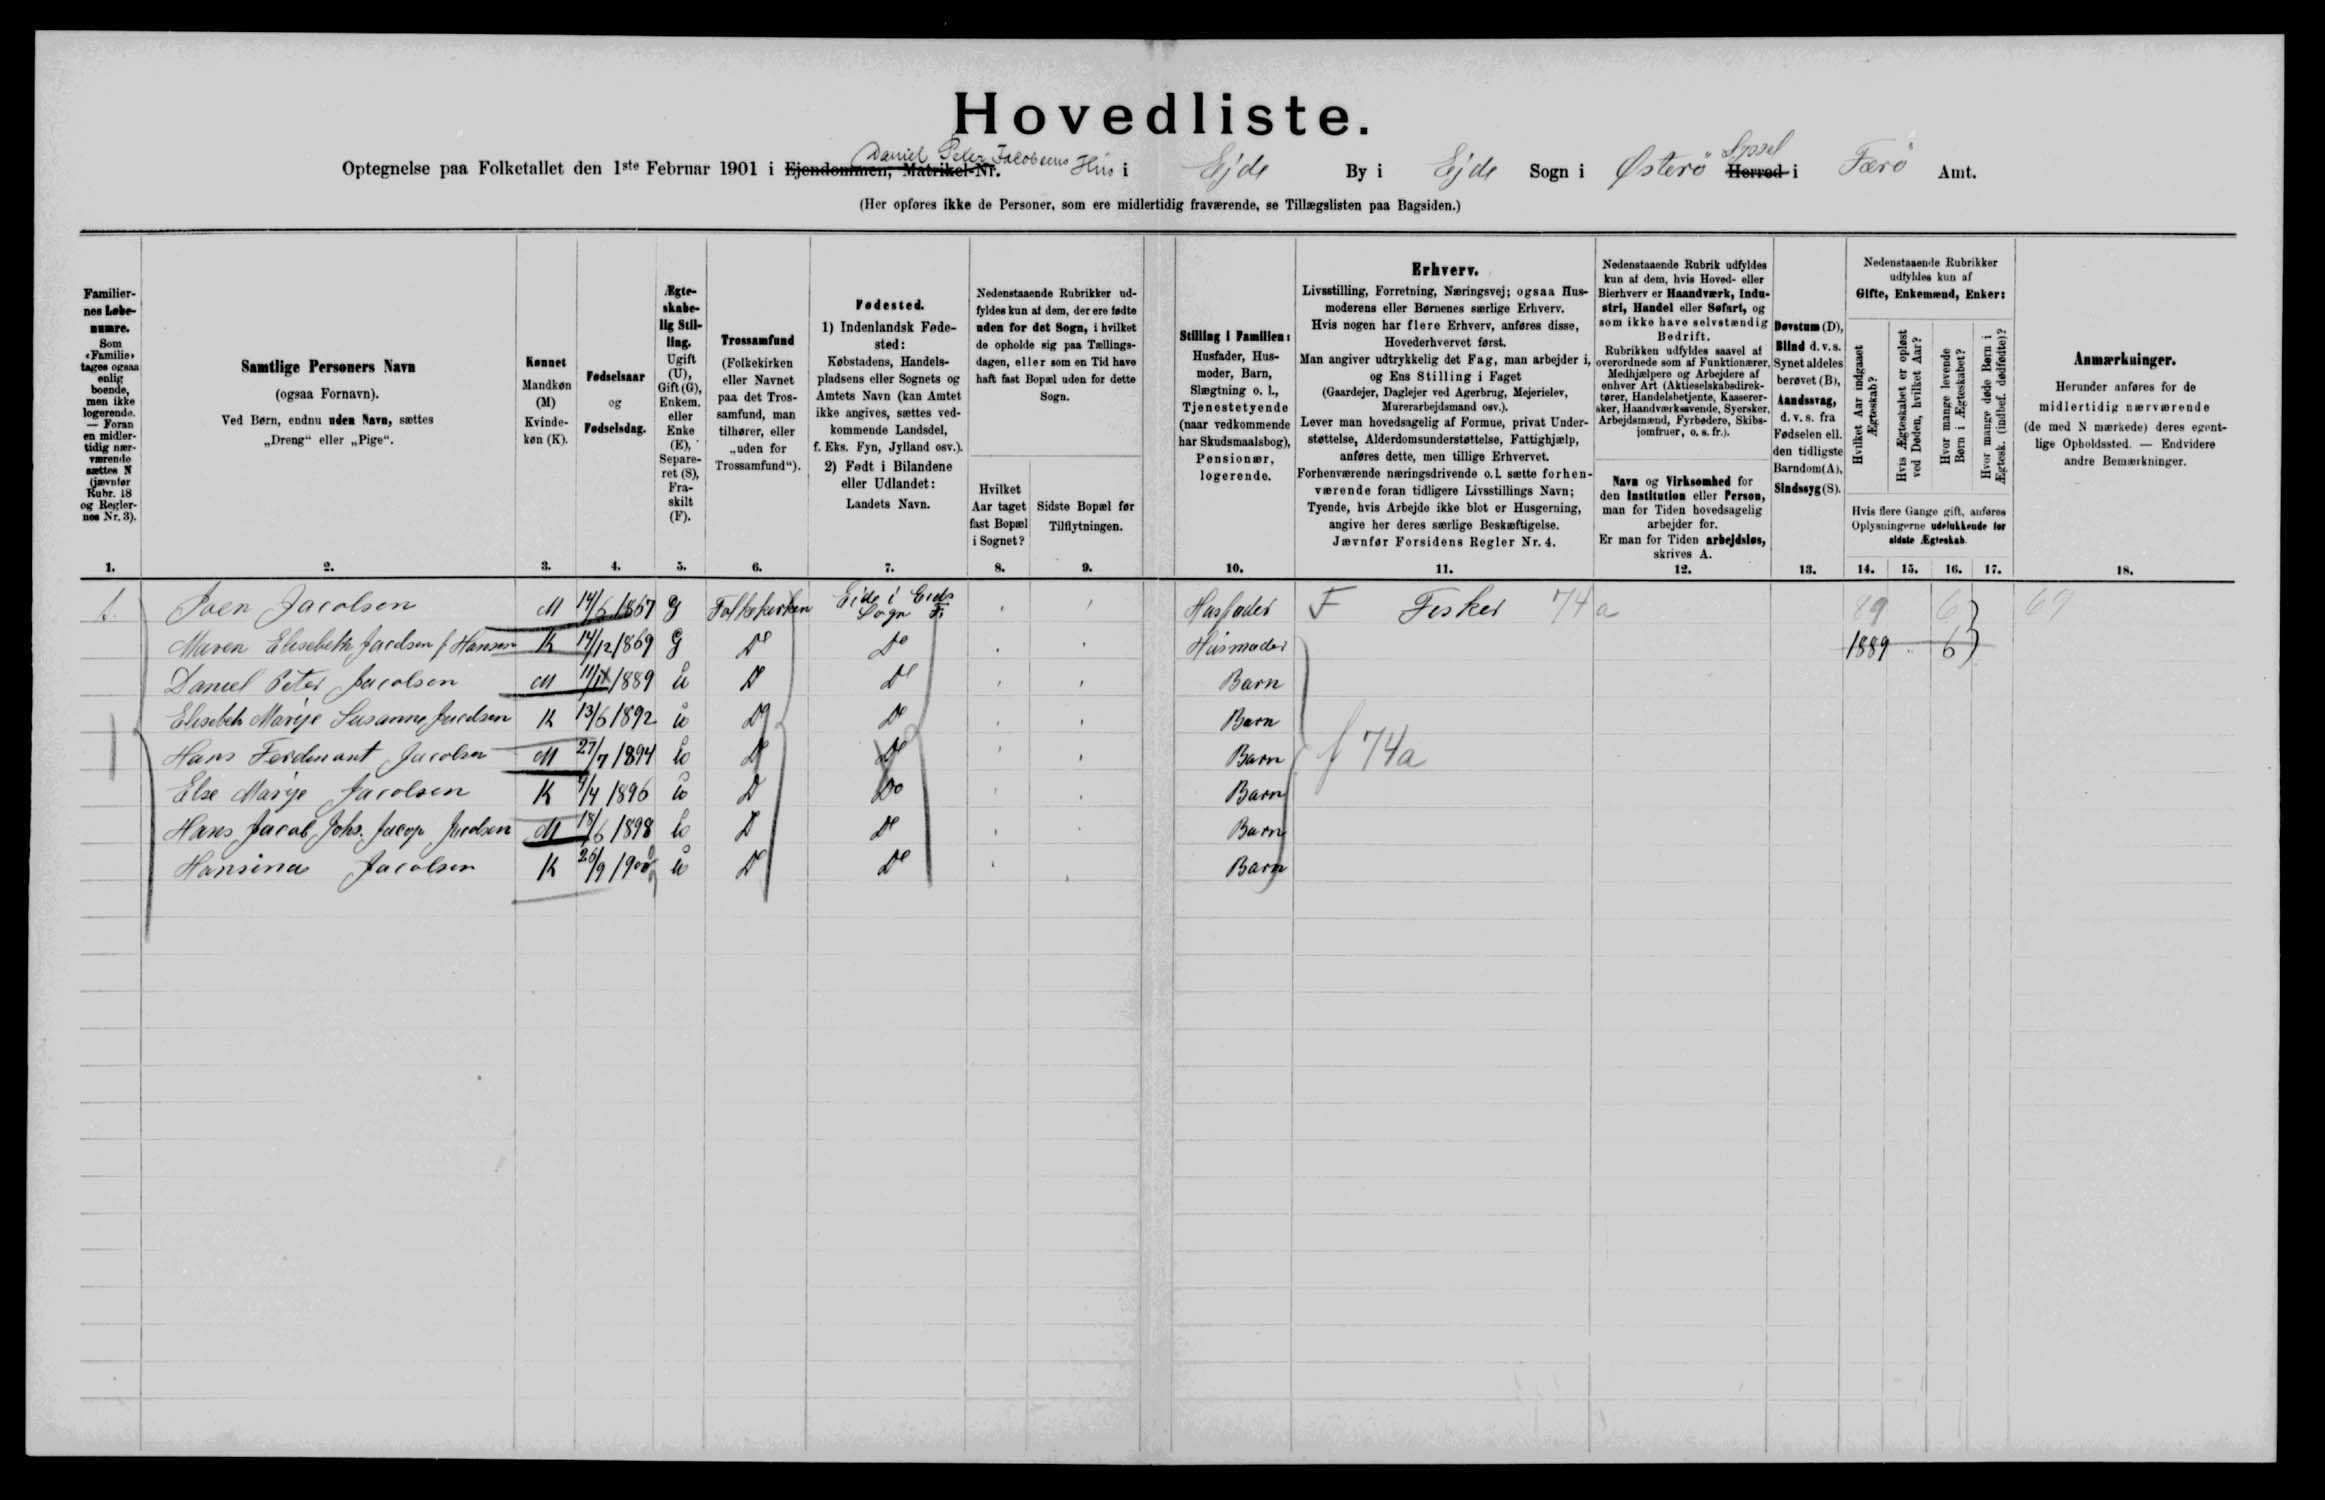 Hovedliste.
Optegnelse paa Folketallet den 1ste Februar 1901 i Ejendommen, Matrikel-Nr. Daniel Peter Jacobsens Hus i Ejde By i Ejde Sogn i Østerø Herred Syssel i Færö Amt.
(Her opføres ikke de Personer, som ere midlertidig fraværende, se Tillægslisten paa Bagsiden.)
Familiernes Løbenumre.
Som «Familie» tages ogsaa enlig boende, men ikke logerende. — Foran en midlertidig nærværende sættes N (jævnfør Rubr. 18 og Reglernes Nr. 3).
1.
Samtlige Personers Navn
(ogsaa Fornavn).
Ved Børn, endnu uden Navn, sættes
„Dreng“ eller „Pige“.
2.
Kønnet
Mandkøn (M)
Kvindekøn (K).
3.
Fødselsaar
og
Fødselsdag.
4.
Ægteskabelig Stilling.
Ugift (U), Gift (G), Enkem. eller Enke (E), Separeret (S), Fraskilt (F).
5.
Trossamfund
(Folkekirken eller Navnet paa det Trossamfund, man tilhører, eller „uden for Trossamfund“).
6.
Fødested.
1) Indenlandsk Fødested:
Købstadens, Handelspladsens eller Sognets og Amtets Navn (kan Amtet ikke angives, sættes vedkommende Landsdel, f. Eks. Fyn, Jylland osv.).
2) Født i Bilandene eller Udlandet:
Landets Navn.
7.
Nedenstaaende Rubrikker udfyldes kun af dem, der ere fødte uden for det Sogn, i hvilket de opholde sig paa Tællingsdagen, eller som en Tid have haft fast Bopæl uden for dette Sogn.
Hvilket Aar taget fast Bopæl i Sognet?
8.
Sidste Bopæl før Tilflytningen.
9.
Stilling i Familien:
Husfader, Husmoder, Barn, Slægtning o. l., Tjenestetyende (naar vedkommende har Skudsmaalsbog), Pensionær, logerende.
10.
Erhverv.
Livsstilling, Forretning, Næringsvej; ogsaa Husmoderens eller Børnenes særlige Erhverv.
Hvis nogen har flere Erhverv, anføres disse, Hovederhvervet først.
Man angiver udtrykkelig det Fag, man arbejder i, og Ens Stilling i Faget
(Gaardejer, Daglejer ved Agerbrug, Mejerielev, Murerarbejdsmand osv.).
Lever man hovedsagelig af Formue, privat Understøttelse, Alderdomsunderstøttelse, Fattighjælp, anføres dette, men tillige Erhvervet.
Forhenværende næringsdrivende o. l. sætte forhenværende foran tidligere Livsstillings Navn;
Tyende, hvis Arbejde ikke blot er Husgerning, angive her deres særlige Beskæftigelse.
Jævnfør Forsidens Regler Nr. 4.
11.
Nedenstaaende Rubrik udfyldes kun af dem, hvis Hoved- eller Bierhverv er Haandværk, Industri, Handel eller Søfart, og som ikke have selvstændig Bedrift.
Rubrikken udfyldes saavel af overordnede som af Funktionærer, Medhjælpere og Arbejdere af enhver Art (Aktieselskabsdirektører, Handelsbetjente, Kasserersker, Haandværkssvende, Syersker, Arbejdsmænd, Fyrbødere, Skibsjomfruer, o. s. fr.).
Navn og Virksomhed for den Institution eller Person, man for Tiden hovedsagelig arbejder for.
Er man for Tiden arbejdsløs, skrives A.
12.
Døvstum (D), Blind d. v. s. Synet aldeles berøvet (B), Aandssvag, d. v. s. fra Fødselen ell. den tidligste Barndom (A), Sindssyg (S).
13.
Nedenstaaende Rubrikker udfyldes kun af
Gifte, Enkemænd, Enker:
Hvilket Aar indgaaet Ægteskab?
Hvis Ægteskabet er opløst ved Døden, hvilket Aar?
Hvor mange levende Børn i Ægteskabet?
Hvor mange døde Børn i Ægtesk. (indbef. dødfødte)?
Hvis flere Gange gift, anføres Oplysningerne udelukkende for sidste Ægteskab.
14. 15. 16. 17.
Anmærkninger.
Herunder anføres for de midlertidig nærværende (de med N mærkede) deres egentlige Opholdssted. — Endvidere andre Bemærkninger.
18.
1. Joen Jacobsen M 14/6 1867 G Folkekirken Eide i Eids Sogn F. Husfader F Fisker 74 a 89 6 69
Maren Elisebeth Jacobsen f. Hansen K 14/12 1869 G Do Do Husmoder 1889 6
Daniel Peter Jacobsen M 11/11 1889 U Do Do Barn
Elisebeth Marije Susanne Jacobsen K 13/6 1892 U Do Do Barn
Hans Ferdinant Jacobsen M 27/7 1894 U Do Do Barn f 74a
Else Marije Jacobsen K 9/4 1896 U Do Do Barn
Hans Jacob Johs. Jacop Jacobsen M 18/6 1898 U Do Do Barn
Hansina Jacobsen K 26/9 1900 U Do Do Barn